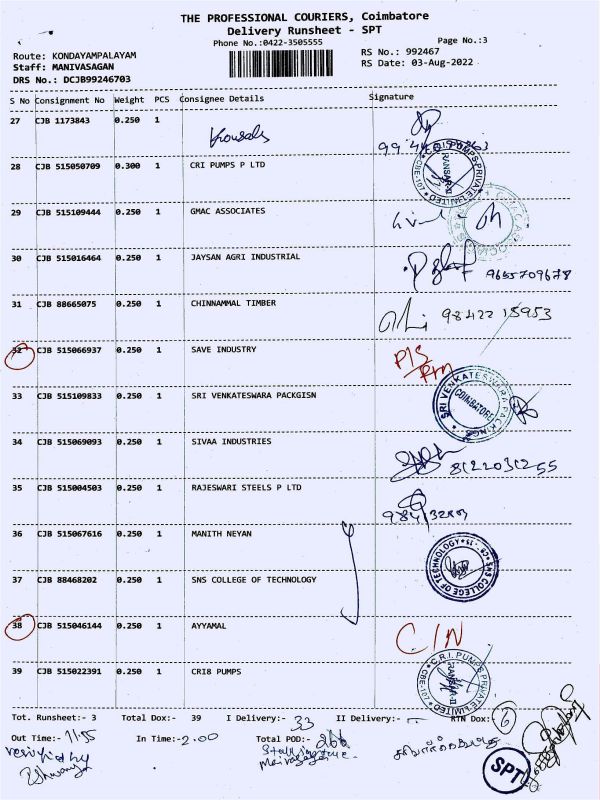 THE PROFESSIONAL COURIERS, Coimbatore
Delivery Runsheet - SPT
Phone No.:0422-3505555
Page No.:3
Route: KONDAYAMPALAYAM
RS No.: 992467
Staff: MANIVASAGAN
RS Date: 03-Aug-2022
DRS No.: DCJB99246703
S No Consignment No Weight PCS Consignee Details Signature
27 CJB 1173843 0.250 1
28 CJB 515050709 0.300 1 CRI PUMPS P LTD
29 CJB 515109444 0.250 1 GMAC ASSOCIATES
30 CJB 515016464 0.250 1 JAYSAN AGRI INDUSTRIAL
9655709678
31 CJB 88665075 0.250 1 CHINNAMMAL TIMBER
98422 15953
32 CJB 515066937 0.250 1 SAVE INDUSTRY
33 CJB 515109833 0.250 1 SRI VENKATESWARA PACKGISN
SRI VENKATESWARA PACKINGS COIMBATORE
34 CJB 515069093 0.250 1 SIVAA INDUSTRIES
8122031255
35 CJB 515004503 0.250 1 RAJESWARI STEELS P LTD
36 CJB 515067616 0.250 1 MANITH NEYAN
SNS COLLEGE OF TECHNOLOGY
37 CJB 88468202 0.250 1 SNS COLLEGE OF TECHNOLOGY
38 CJB 515046144 0.250 1 AYYAMAL
C/N
39 CJB 515022391 0.250 1 CRI8 PUMPS
C.R.I. PUMPS PRIVATE LIMITED
Tot. Runsheet:- 3 Total Dox:- 39 I Delivery:- 33 II Delivery:- RTN Dox: 6
Out Time:- 11.55 In Time:- 2.00 Total POD:-
verified by
SPT